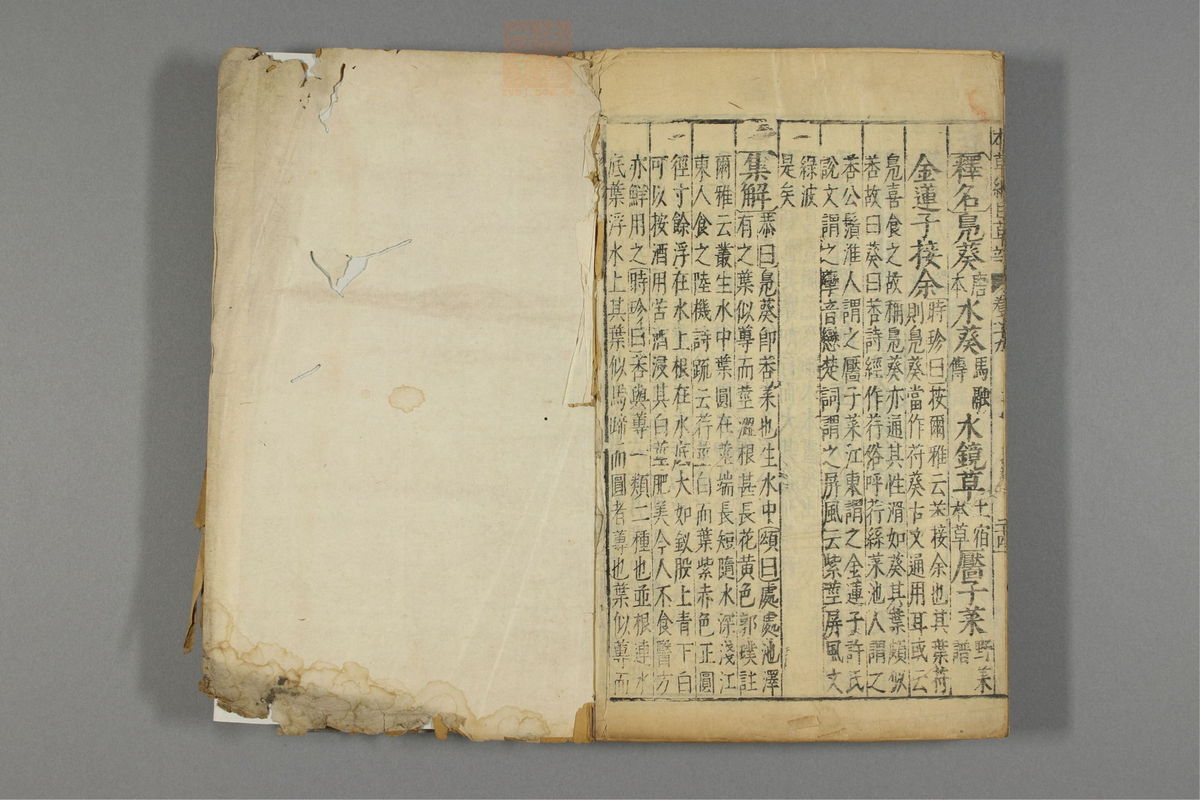 釋名鳧葵唐本水葵馬融傳水鏡草土宿本草靨子菜野菜譜
金蓮子接余時珍曰按爾雅云莕接余也其葉苻則鳧葵當作苻葵古文通用耳或云
鳧喜食之故稱鳧葵亦通其性滑如葵其葉頗似
莕故曰葵曰莕詩經作荇俗呼荇絲菜池人謂之
莕公鬚淮人謂之靨子菜江東謂之金蓮子許氏
說文謂之䜌音戀楚詞謂之屏風云紫莖屏風文
綠波
是矣
集解恭曰鳧葵即莕菜也生水中頌曰處處池澤
有之葉似蓴而莖澀根甚長花黃色郭璞註
爾雅云叢生水中葉圓在莖端長短隨水深淺江
東人食之陸機詩疏云荇莖白而葉紫赤色正圓
徑寸餘浮在水上根在水底大如釵股上青下白
可以按酒用苦酒浸其白莖肥美今人不食醫方
亦鮮用之時珍曰莕與蓴一類二種也並根連水
底葉浮水上其葉似馬蹄而圓者蓴也葉似蓴而